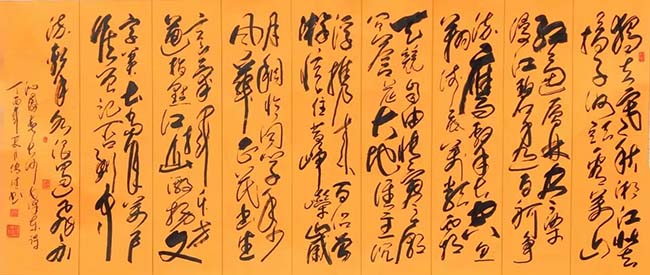 独立寒秋湘江北去
橘子洲头看万山
红遍层林尽染
漫江碧透百舸争
流鹰击长空鱼
翔浅底万类霜
天竞自由怅寥廓
问苍茫大地谁主沉
浮携来百侣曾
游忆往昔峥嵘岁
月稠恰同学少年
风华正茂书生
意气挥斥方
遒指点江山激扬文
字粪土当年万户
侯曾记否到中
流击水浪遏飞舟
沁园春长沙毛泽东诗
丁酉年